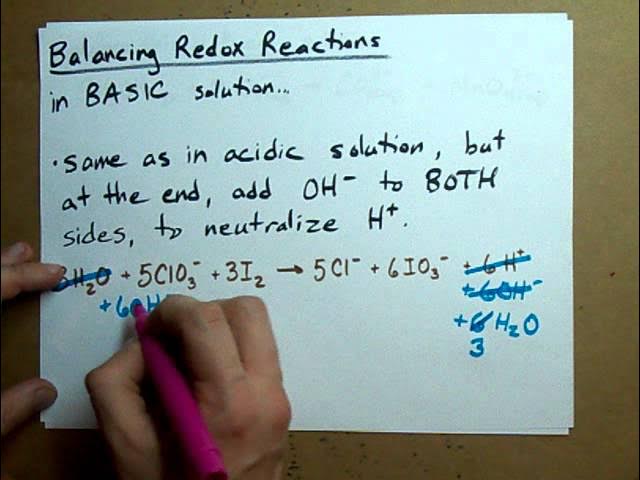 Balancing Redox Reactions
in BASIC solution...
• Same as in acidic solution, but
at the end, add OH⁻ to BOTH
sides, to neutralize H⁺.
3H₂O + 5ClO₃⁻ + 3I₂ → 5Cl⁻ + 6IO₃⁻ + 6H⁺
+ 6OH + 6OH⁻
+ 6H₂O
3